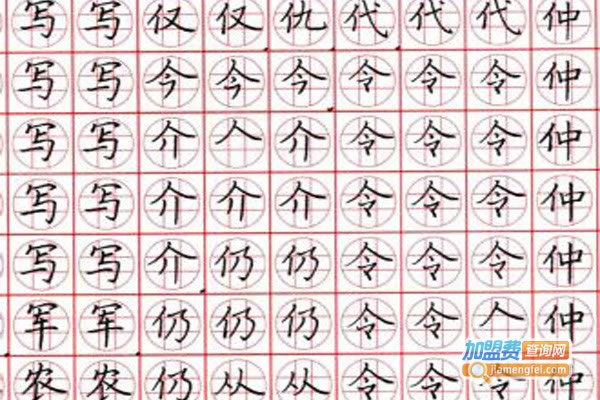 写 写 仅 仅 仇 代 代 代 仲
写 写 今 今 今 令 令 令 仲
写 写 介 人 介 令 令 令 仲
写 写 介 介 介 令 令 令 仲
写 写 介 仍 仍 令 令 令 仲
军 军 仍 仍 仍 令 令 人 仲
农 农 仍 从 从 令 令
加盟费查询网
jiamengfei.com